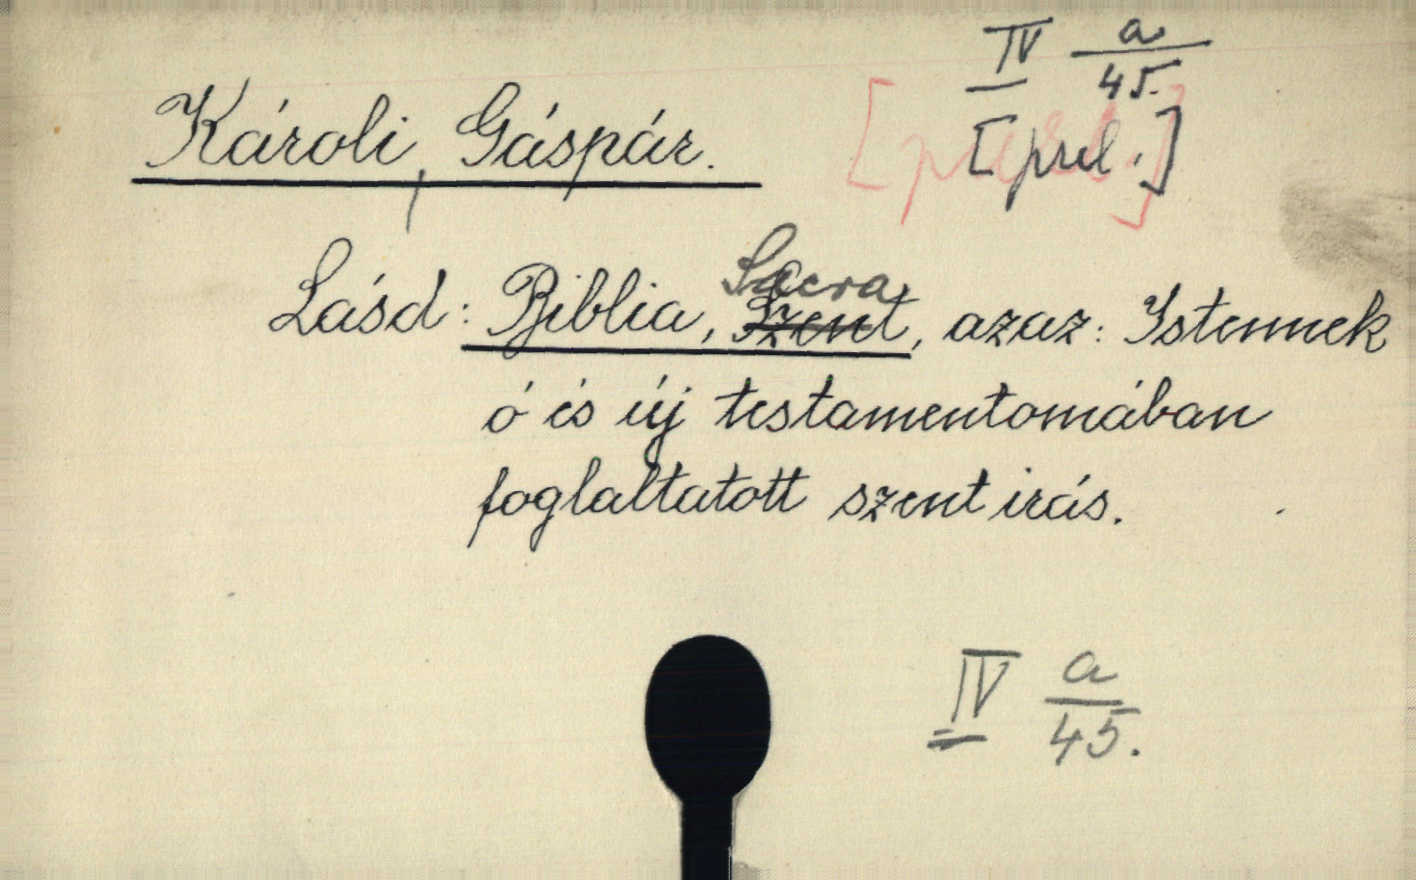 IV a/45.
Károli, Gáspár. [prel.]
Lásd: Biblia, Sacra Szent, azaz: Istennek
ó és új testamentomában
foglaltatott szent irás.
IV a/45.